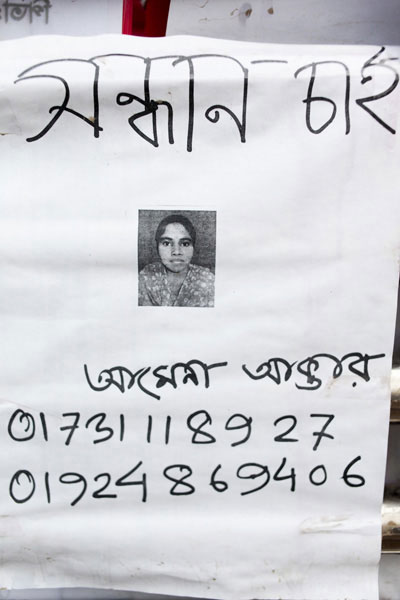 সন্ধান চাই
আমেনা আক্তার
01731118927
01924869406